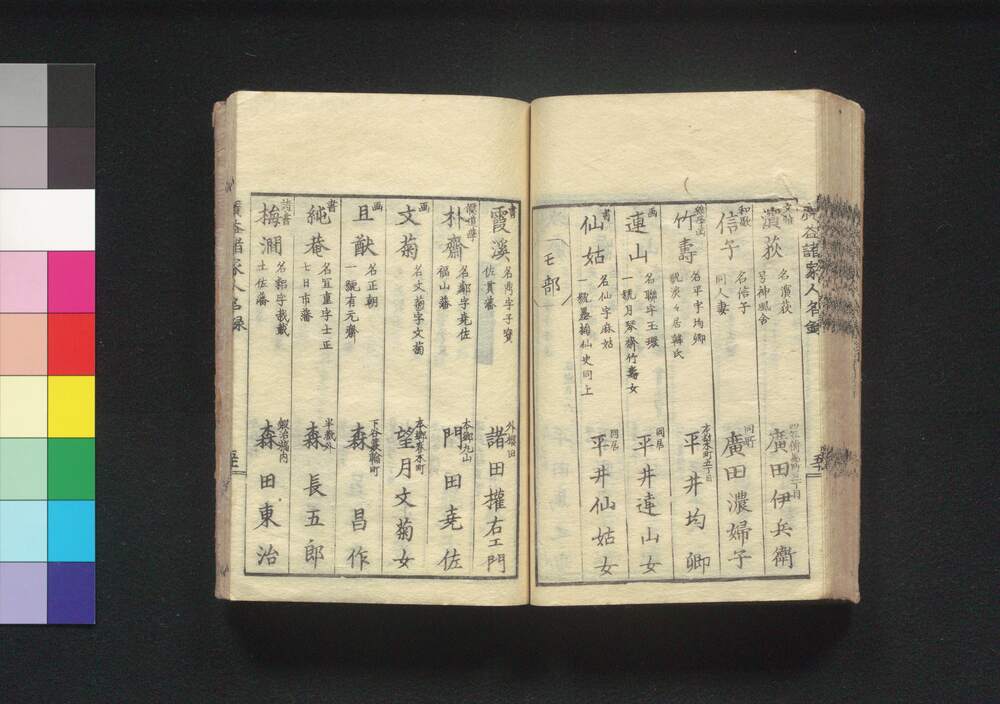 廣益諸家人名録
濱荻
名濱荻
号神風舍
廣田伊兵衛
和歌
信子
名信子
同人妻
同所
廣田濃婦子
竹壽
名平字均卿
平井均卿
画
連山
名聯字玉環
一號月琴齋竹壽女
同居
平井連山女
書
仙姑
名仙字麻姑
一號墨梅仙史同上
同居
平井仙姑女
モ部
書
霞溪
名秀字子寶
佐貫藩
外櫻田
諸田權右エ門
朴齋
名鄰字堯佐
福山藩
本郷丸山
門田堯佐
画
文菊
名文菊字文菊
本郷春木町
望月文菊女
画
且猷
名正朝
一號有元齋
下谷長者町
森昌作
書
純菴
名宜直字士正
七日市藩
半藏外
森長五郎
詩書
梅澗
土佐藩
鍛冶橋内
森田東治
廣益諸家人名録